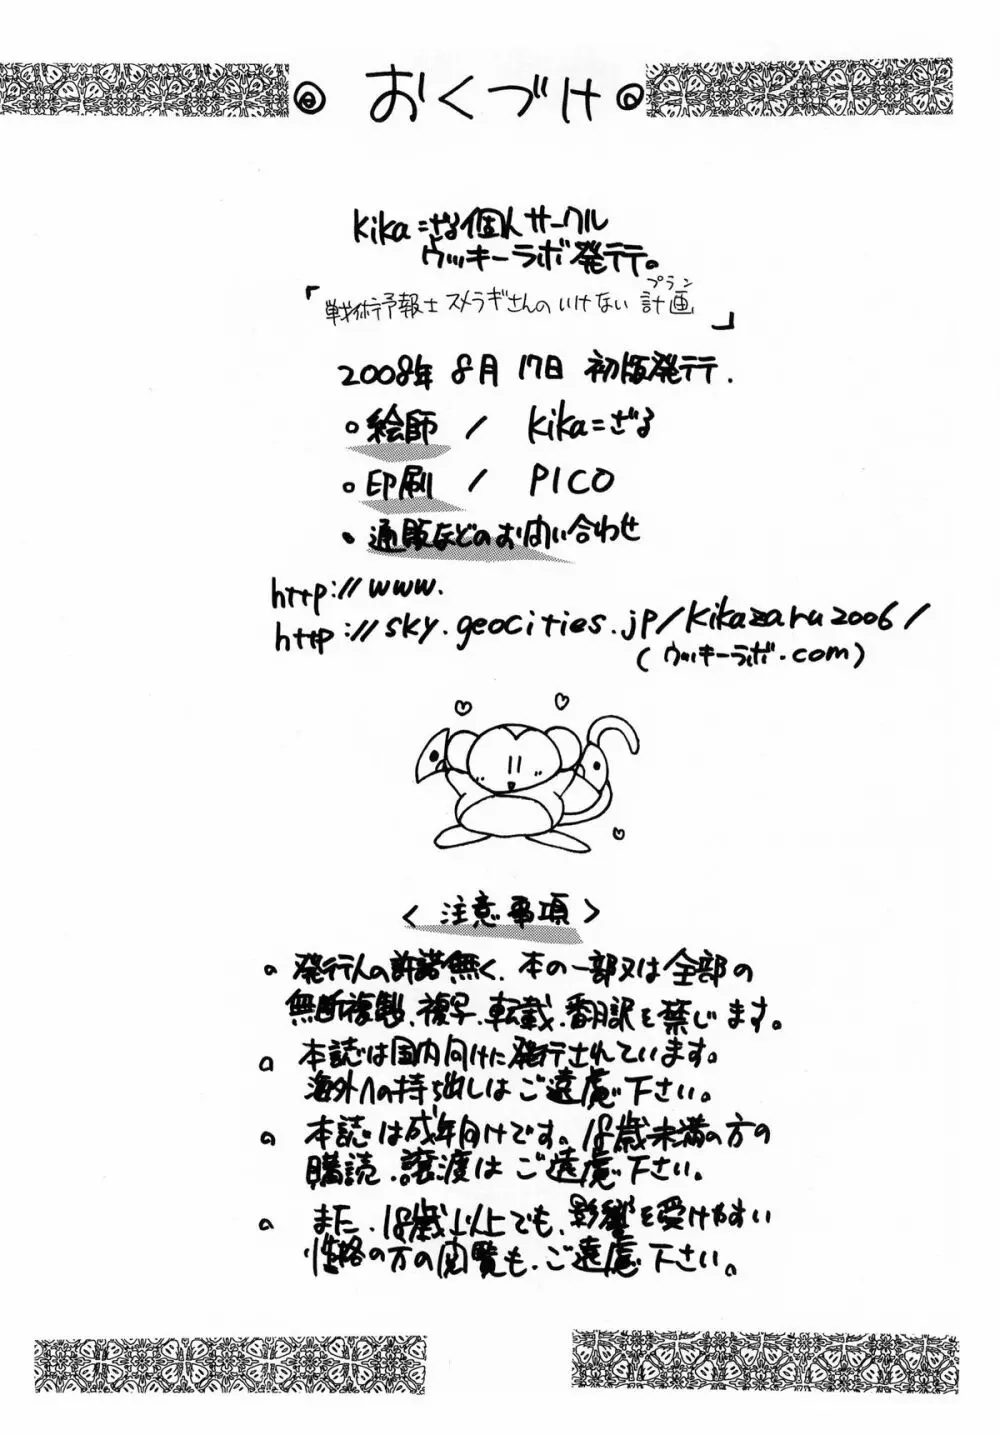 おくづけ
kika=ざる個人サークル
ウッキーラボ発行。
プラン
「戦術予報士スメラギさんのいけない計画」
2008年8月17日 初版発行.
。絵師 / kika=ざる
。印刷 / PICO
・通販などのお問い合わせ
http://www.
http://sky.geocities.jp/kikazaru2006/
(ウッキーラボ.com)
<注意事項>
。発行人の許諾無く、本の一部又は全部の
無断複製、複写、転載、翻訳を禁じます。
。本誌は国内向けに発行されています。
海外への持ち出しはご遠慮下さい。
。本誌は成年向けです。18歳未満の方の
購読、譲渡はご遠慮下さい。
。また、18歳以上でも、影響を受けやすい
性格の方の閲覧も、ご遠慮下さい。